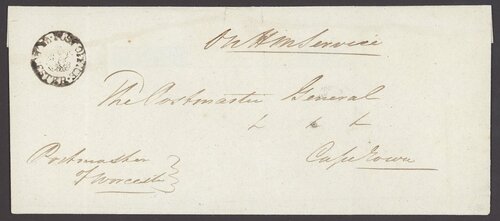 On HM Service
The Postmaster General
Cape Town
Postmaster
of Worcester